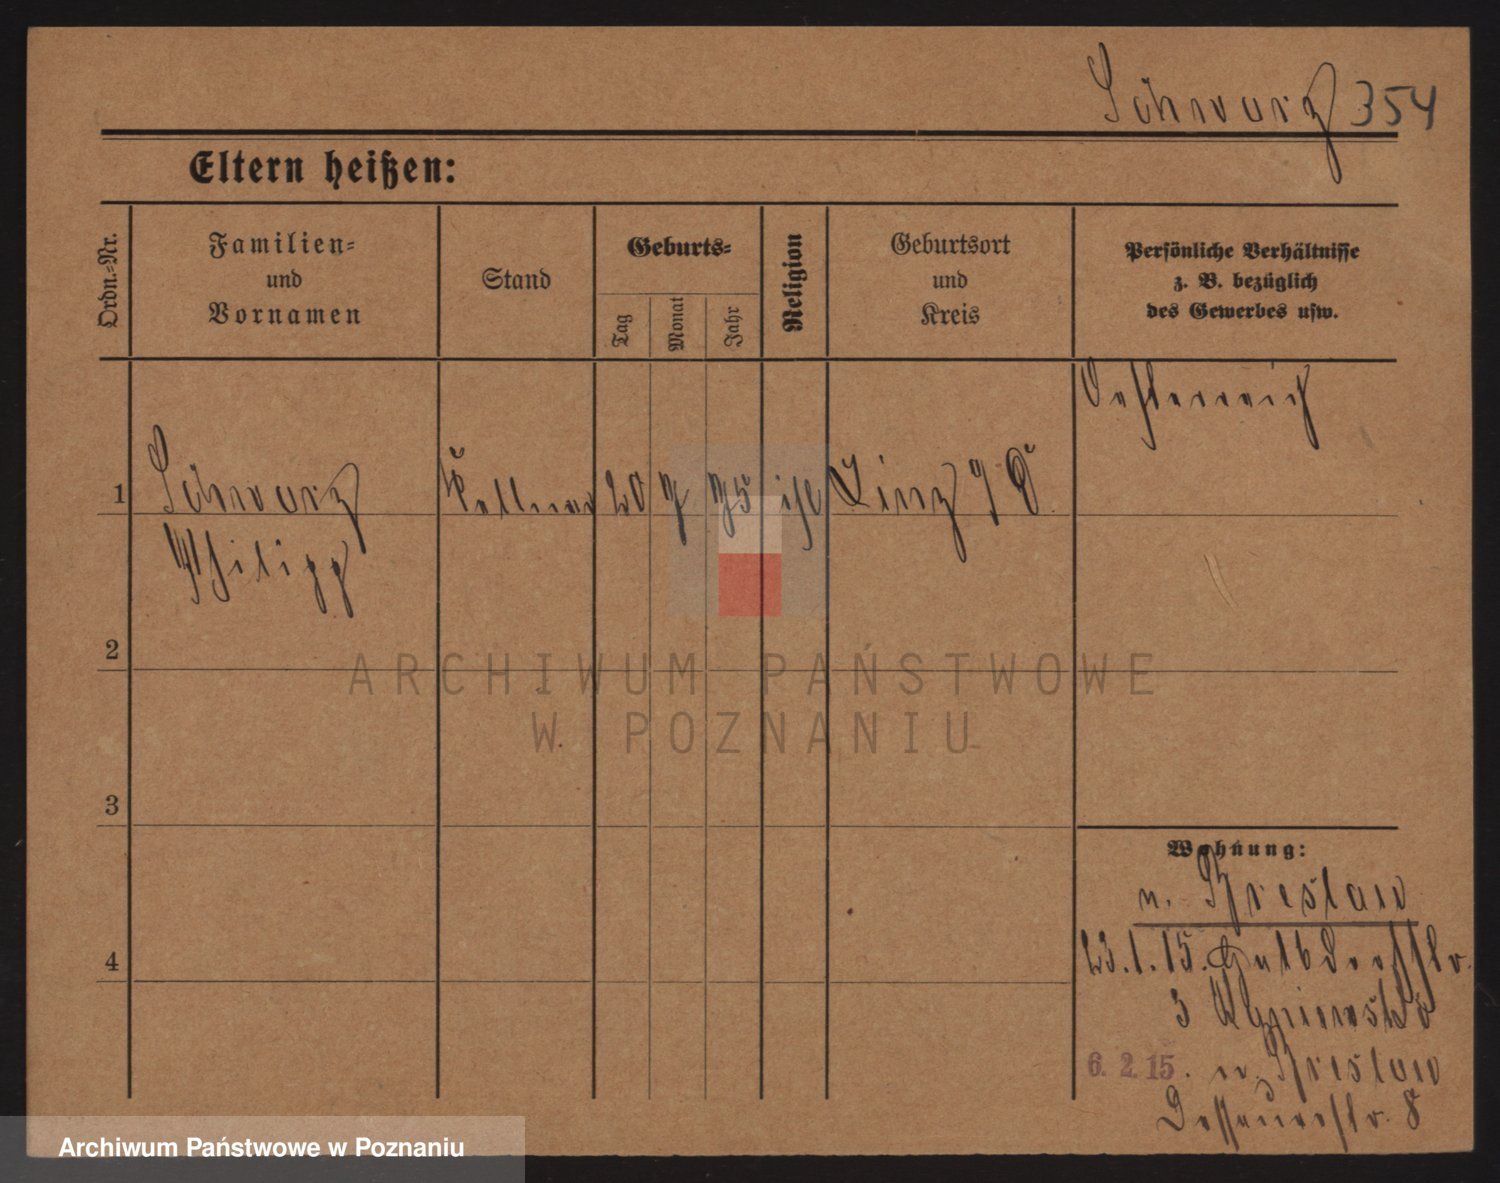 Schwarz 354
Eltern heißen:
Ordn.-Nr.
Familien-
und
Vornamen
Stand
Geburts-
Tag
Monat
Jahr
Religion
Geburtsort
und
Kreis
Persönliche Verhältnisse
z. B. bezüglich
des Gewerbes usw.
Oesterreich
1 Schwarz Kellner 20 7 75 isr Linz
Philipp
2
3
4
Wohnung:
n. Breslau
23.1.15.
3
6. 2. 15. n. Breslau
8
ARCHIWUM PAŃSTWOWE
W POZNANIU
Archiwum Państwowe w Poznaniu